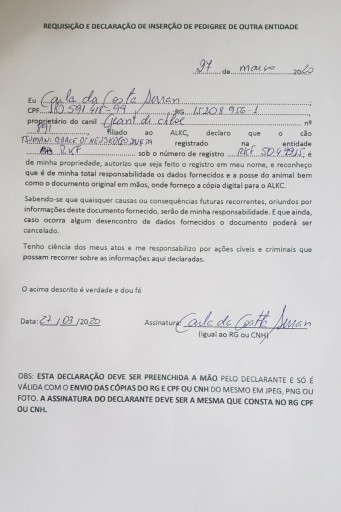 REQUISIÇÃO E DECLARAÇÃO DE INSERÇÃO DE PEDIGREE DE OUTRA ENTIDADE
27 de março 2020
Eu Carla da Costa Serran,
CPF 180 591 418-99, RG 15208 956-1
proprietário do canil Geant de chloe nº
891, filiado ao ALKC, declaro que o cão
registrado na entidade
RKF sob o número de registro RKF é
de minha propriedade, autorizo que seja feito o registro em meu nome, e reconheço
que é de minha total responsabilidade os dados fornecidos e a posse do animal bem
como o documento original em mãos, onde forneço a cópia digital para o ALKC.
Sabendo-se que quaisquer causas ou consequências futuras recorrentes, oriundos por
informações deste documento fornecido, serão de minha responsabilidade. E que ainda,
caso ocorra algum desencontro de dados fornecidos o documento poderá ser
cancelado.
Tenho ciência dos meus atos e me responsabilizo por ações cíveis e criminais que
possam recorrer sobre as informações aqui declaradas.
O acima descrito é verdade e dou fé
Data: 27/03/2020 Assinatura: Carla da Costa Serran
(Igual ao RG ou CNH)
OBS: ESTA DECLARAÇÃO DEVE SER PREENCHIDA A MÃO PELO DECLARANTE E SÓ É
VÁLIDA COM O ENVIO DAS CÓPIAS DO RG E CPF OU CNH DO MESMO EM JPEG, PNG OU
FOTO. A ASSINATURA DO DECLARANTE DEVE SER A MESMA QUE CONSTA NO RG CPF
OU CNH.